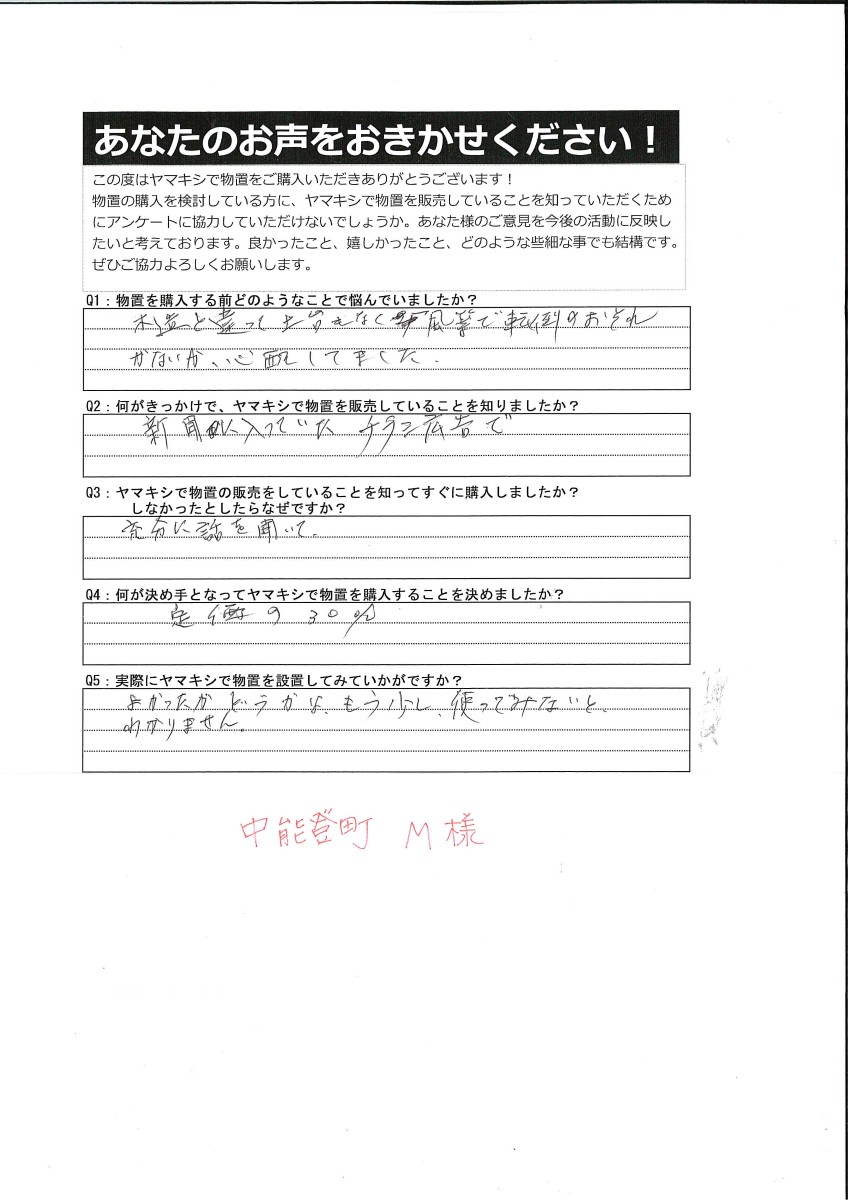 あなたのお声をおきかせください！
この度はヤマキシで物置をご購入いただきありがとうございます！
物置の購入を検討している方に、ヤマキシで物置を販売していることを知っていただくため
にアンケートに協力していただけないでしょうか。あなた様のご意見を今後の活動に反映し
たいと考えております。良かったこと、嬉しかったこと、どのような些細な事でも結構です。
ぜひご協力よろしくお願いします。
Q1：物置を購入する前どのようなことで悩んでいましたか？
木造と違って土台もなく風等で転倒のおそれ
がないか、心配してました．
Q2：何がきっかけで、ヤマキシで物置を販売していることを知りましたか？
新聞に入っていた チラシ広告で
Q3：ヤマキシで物置の販売をしていることを知ってすぐに購入しましたか？
しなかったとしたらなぜですか？
充分に話を聞いて.
Q4：何が決め手となってヤマキシで物置を購入することを決めましたか？
定価の30%
Q5：実際にヤマキシで物置を設置してみていかがですか？
よかったかどうかは、もう少し、使ってみないと、
わかりません。
中能登町 M様